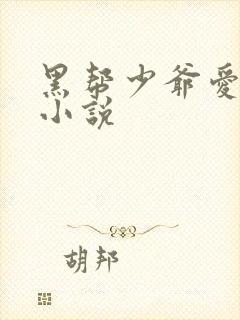 黑帮少爷爱
小説
胡邦